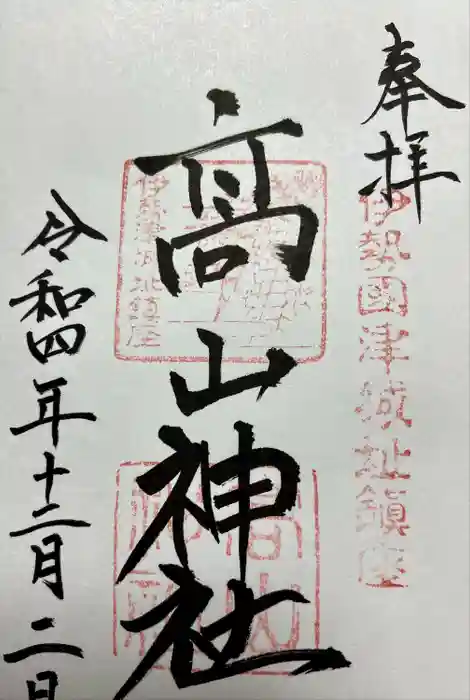 奉拝
伊勢國津城址鎮座
高山神社
伊勢津城址鎮座
高山
神社
令和四年十二月二日